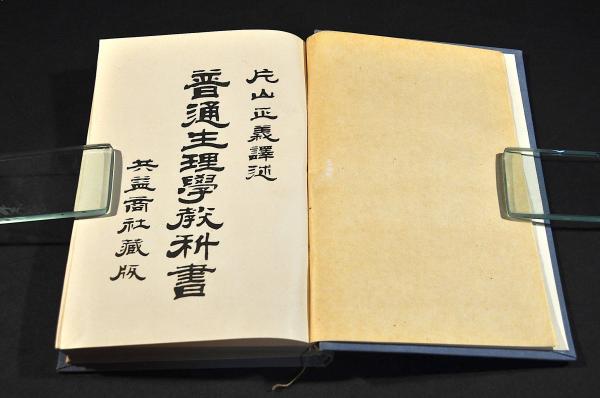 片山正義譯述
普通生理學教科書
共益商社藏版